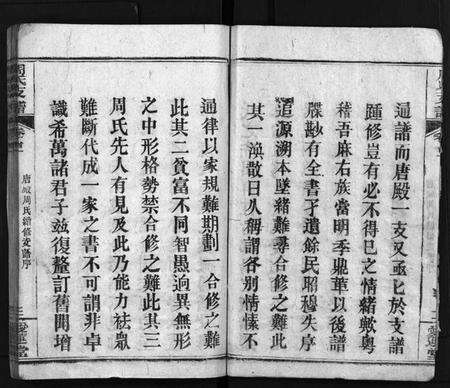 通譜而唐殿一支又亟亟於支譜
踵修豈有必不得已之情緒歟粵
稽吾麻右族當明季鼎革以後譜
牒尠有全書孑遺餘民昭穆失序
追源溯本墜緒難尋合修之難此
其一渙散日久稱謂各別情愫不
通律以家規難期劃一合修之難
此其二貧富不同智愚逈異無形
之中形格勢禁合修之難此其三
周氏先人有見及此乃能力祛眾
難斷代成一家之書不可謂非卓
識希萬諸君子並復釐訂舊聞增
唐殿周氏續修支譜序
周氏支譜
卷首